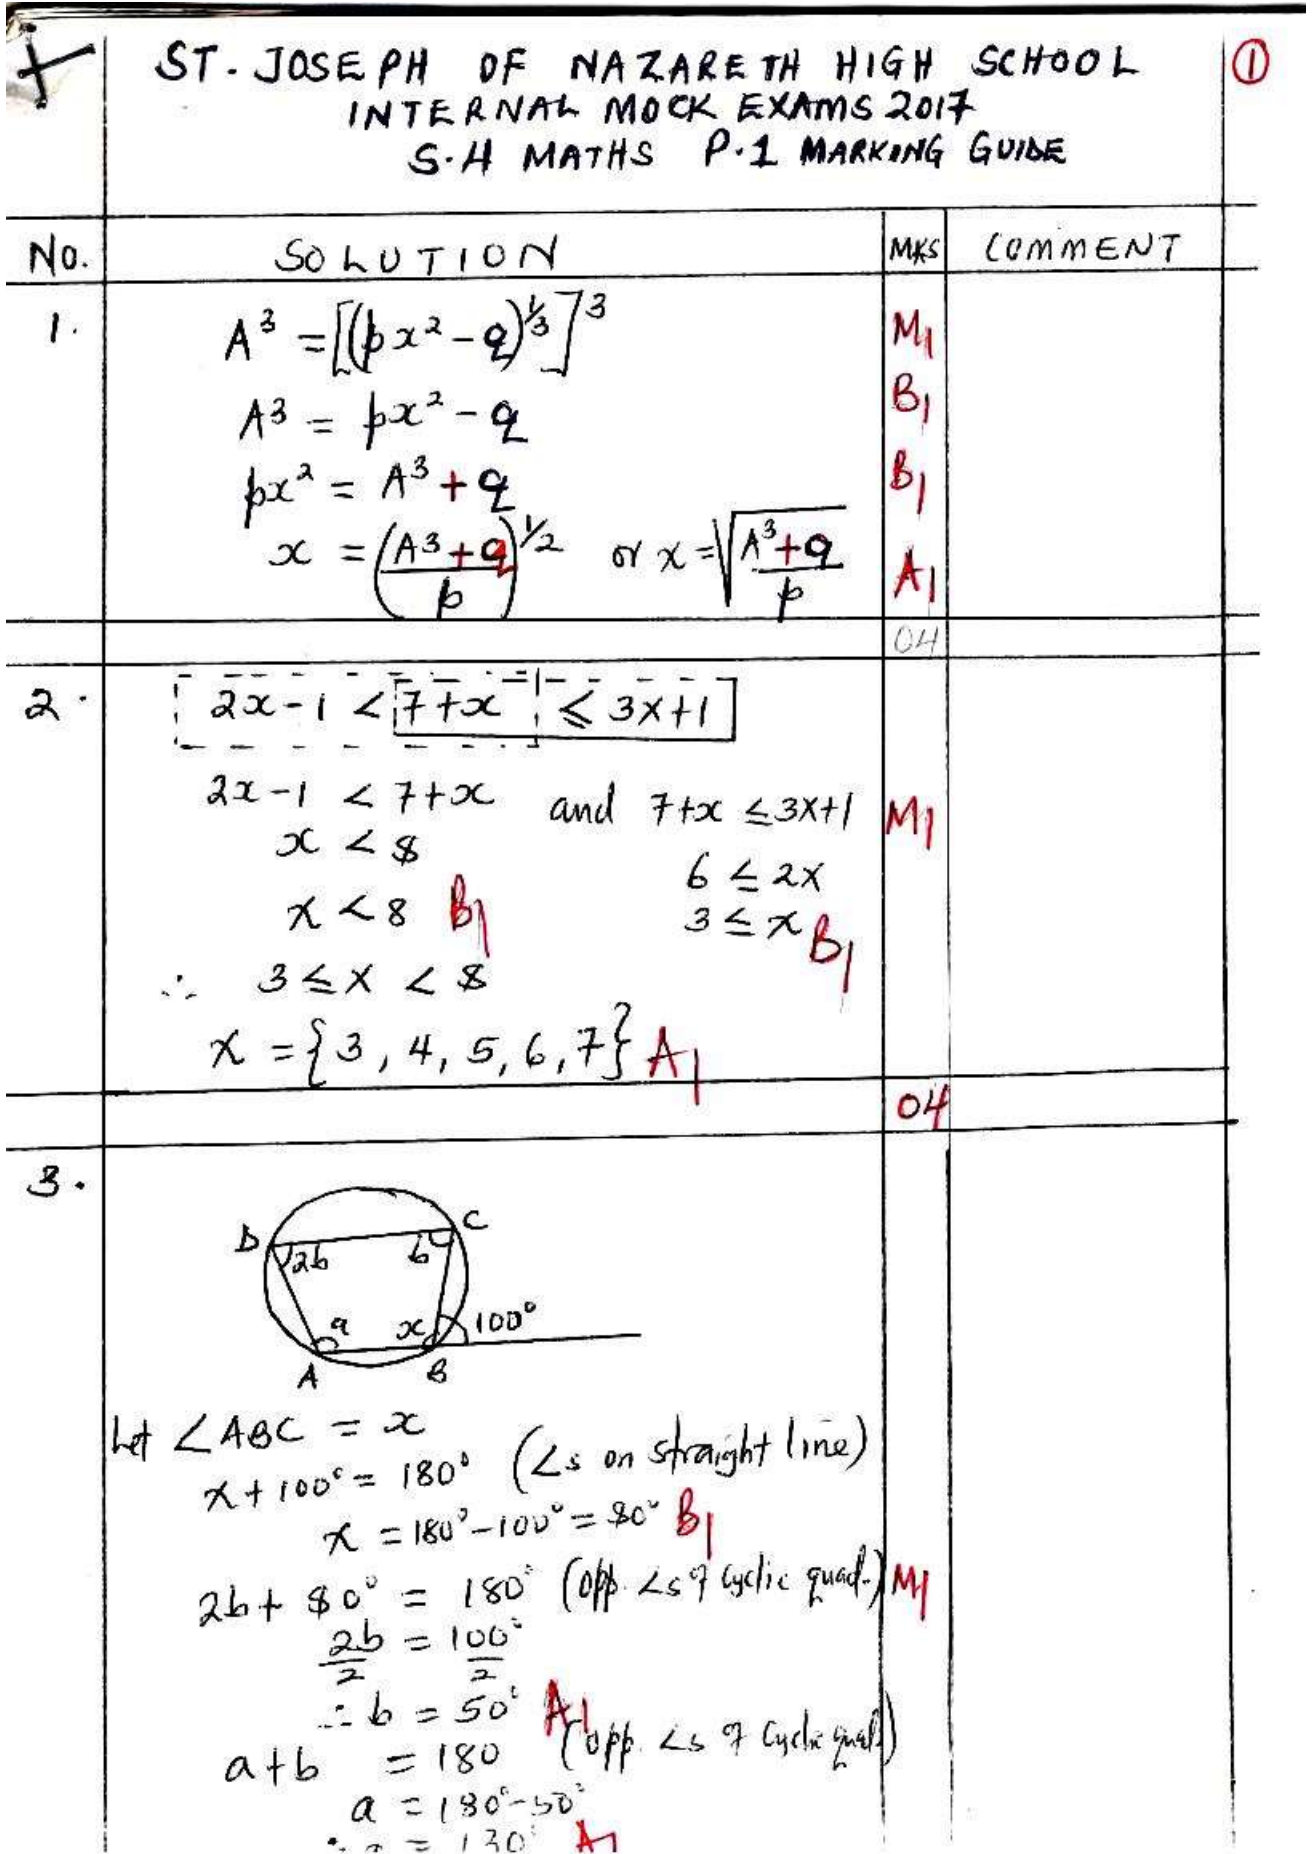 ST. JOSEPH OF NAZARETH HIGH SCHOOL ①
INTERNAL MOCK EXAMS 2017
S.4 MATHS P.1 MARKING GUIDE
NO. SOLUTION MKS COMMENT
1. A³ = [(px² - q)^⅓]³ M1
A³ = px² - q B1
px² = A³ + q B1
x = ((A³+q)/p)^½ or x = √((A³+q)/p) A1
04
2. 2x-1 < 7+x ≤ 3x+1
2x-1 < 7+x and 7+x ≤ 3x+1 M1
x < 8 6 ≤ 2x
x < 8 B1 3 ≤ x B1
∴ 3 ≤ x < 8
x = {3, 4, 5, 6, 7} A1
04
3.
D C
2b b
a x 100°
A B
Let ∠ABC = x
x + 100° = 180° (∠s on straight line)
x = 180° - 100° = 80° B1
2b + 80° = 180° (opp. ∠s of cyclic quad.) M1
2b/2 = 100°/2
∴ b = 50° A1
a + b = 180 (opp. ∠s of cyclic quad.)
a = 180° - 50°
∴ a = 130° A1